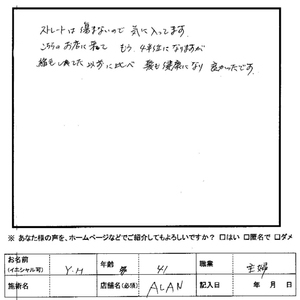 ストレートは傷まないので 気に入ってます。
こちらの お店に来て もう 4年位になりますが
縮毛しなれてた 以前に比べ 髪も健康になり 良かったです。
※ あなた様の声を、ホームページなどでご紹介してもよろしいですか？ □はい □匿名で □ダメ
お名前 (イニシャル可) Y.H 年齢 41 職業 主婦
施術名 店舗名(必須) ALAN 記入日 年 月 日